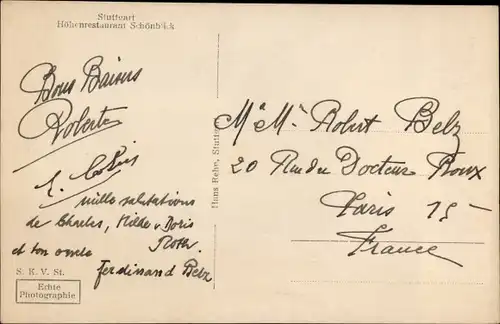 Stuttgart
Höhenrestaurant Schönblick
Bons Baisers
Roberte
mille salutations
de Charles, Hilde u Doris
Roth
et ton oncle
Ferdinand Belz
S. K. V. St.
Echte
Photographie
Hans Rehe, Stuttgart
Mr Me Robert Belz
20 Rue du Docteur Roux
Paris 15
France